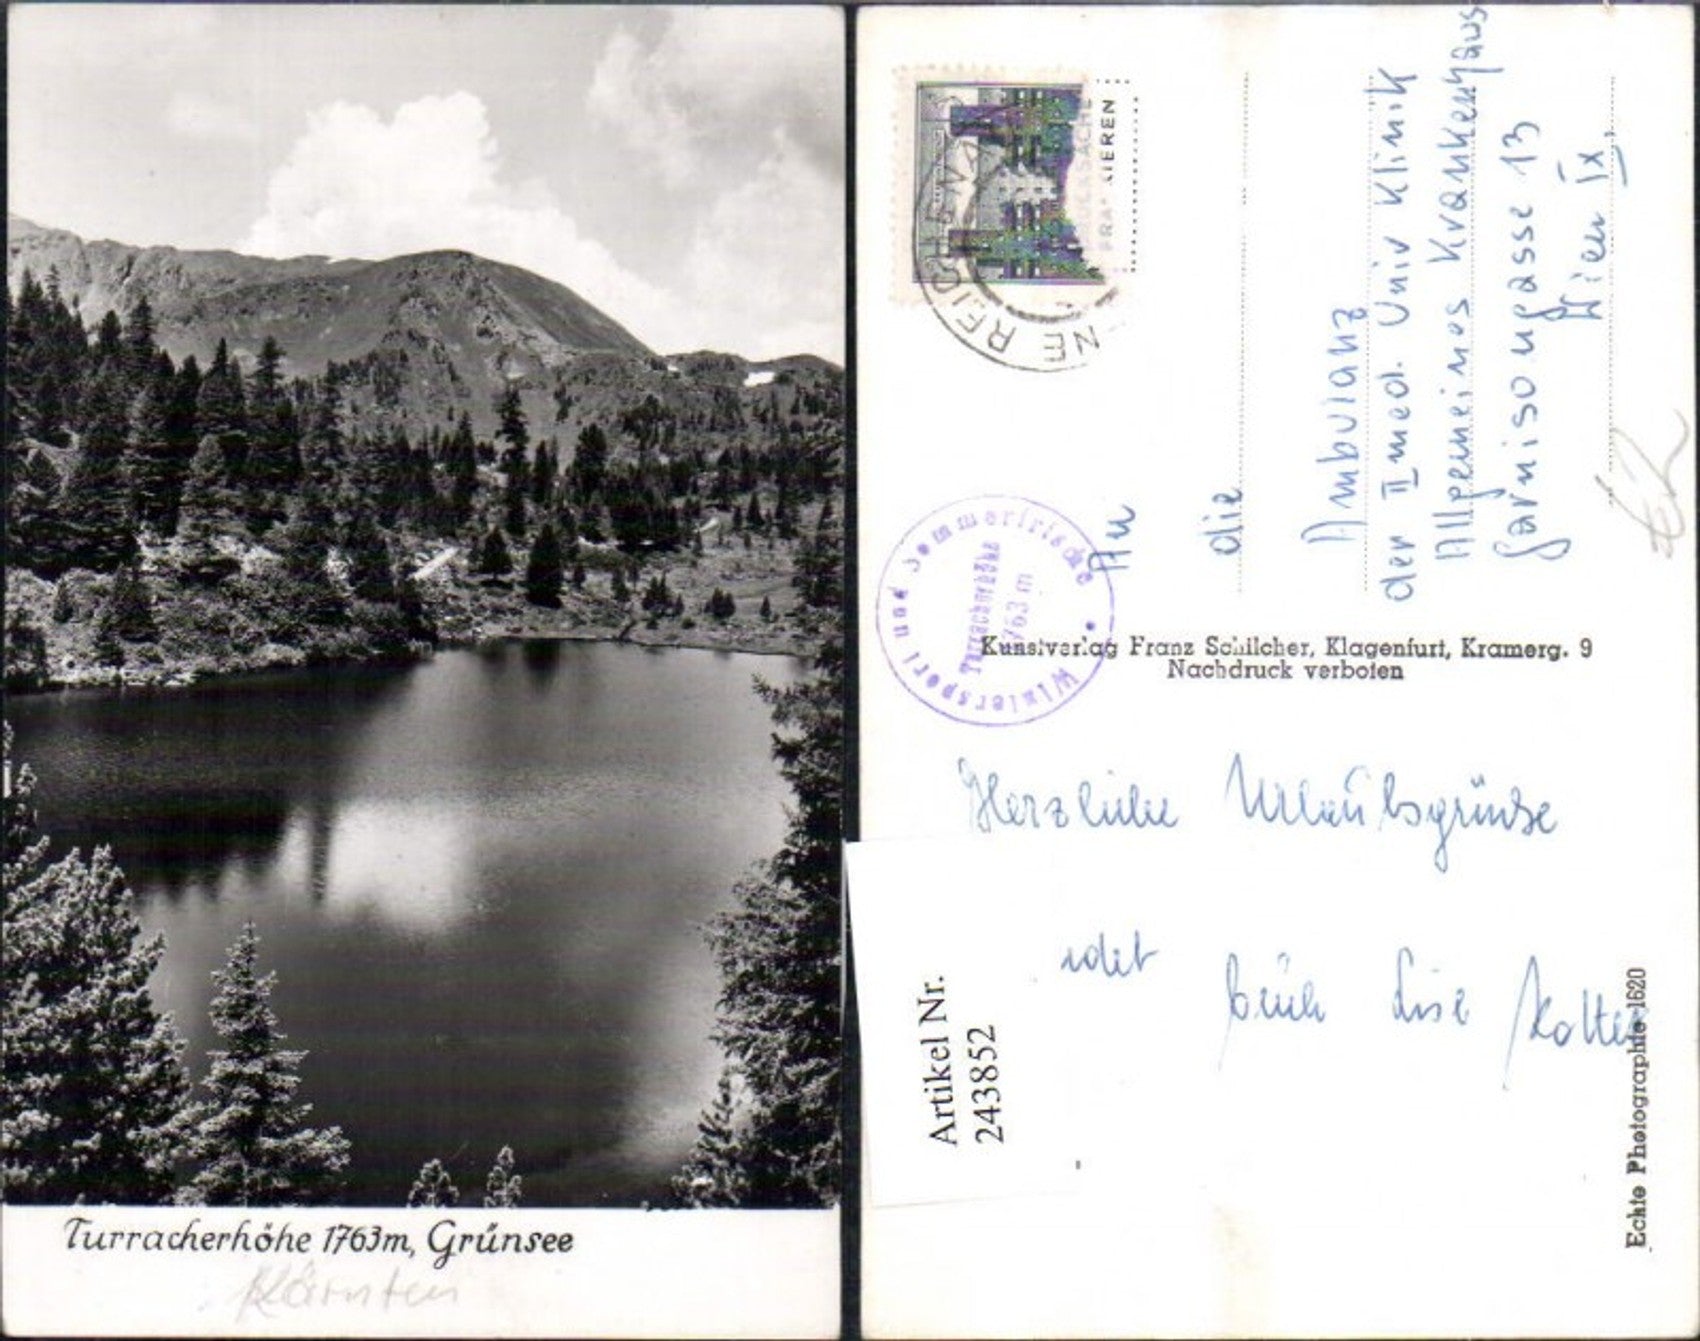 Turracherhöhe 1763m, Grünsee
Kärnten
NE REICH
FRANKIEREN
Wintersport und Sommerfrische
Turracherhöhe
1763 m
An
die
Ambulanz
der II med. Univ Klinik
Allgemeines Krankenhaus
Garnisongasse 13
Wien IX,
Kunstverlag Franz Schilcher, Klagenfurt, Kramerg. 9
Nachdruck verboten
Herzliche Urlaubsgrüsse
Lise
Artikel Nr.
243852
Echte Photographie 1620